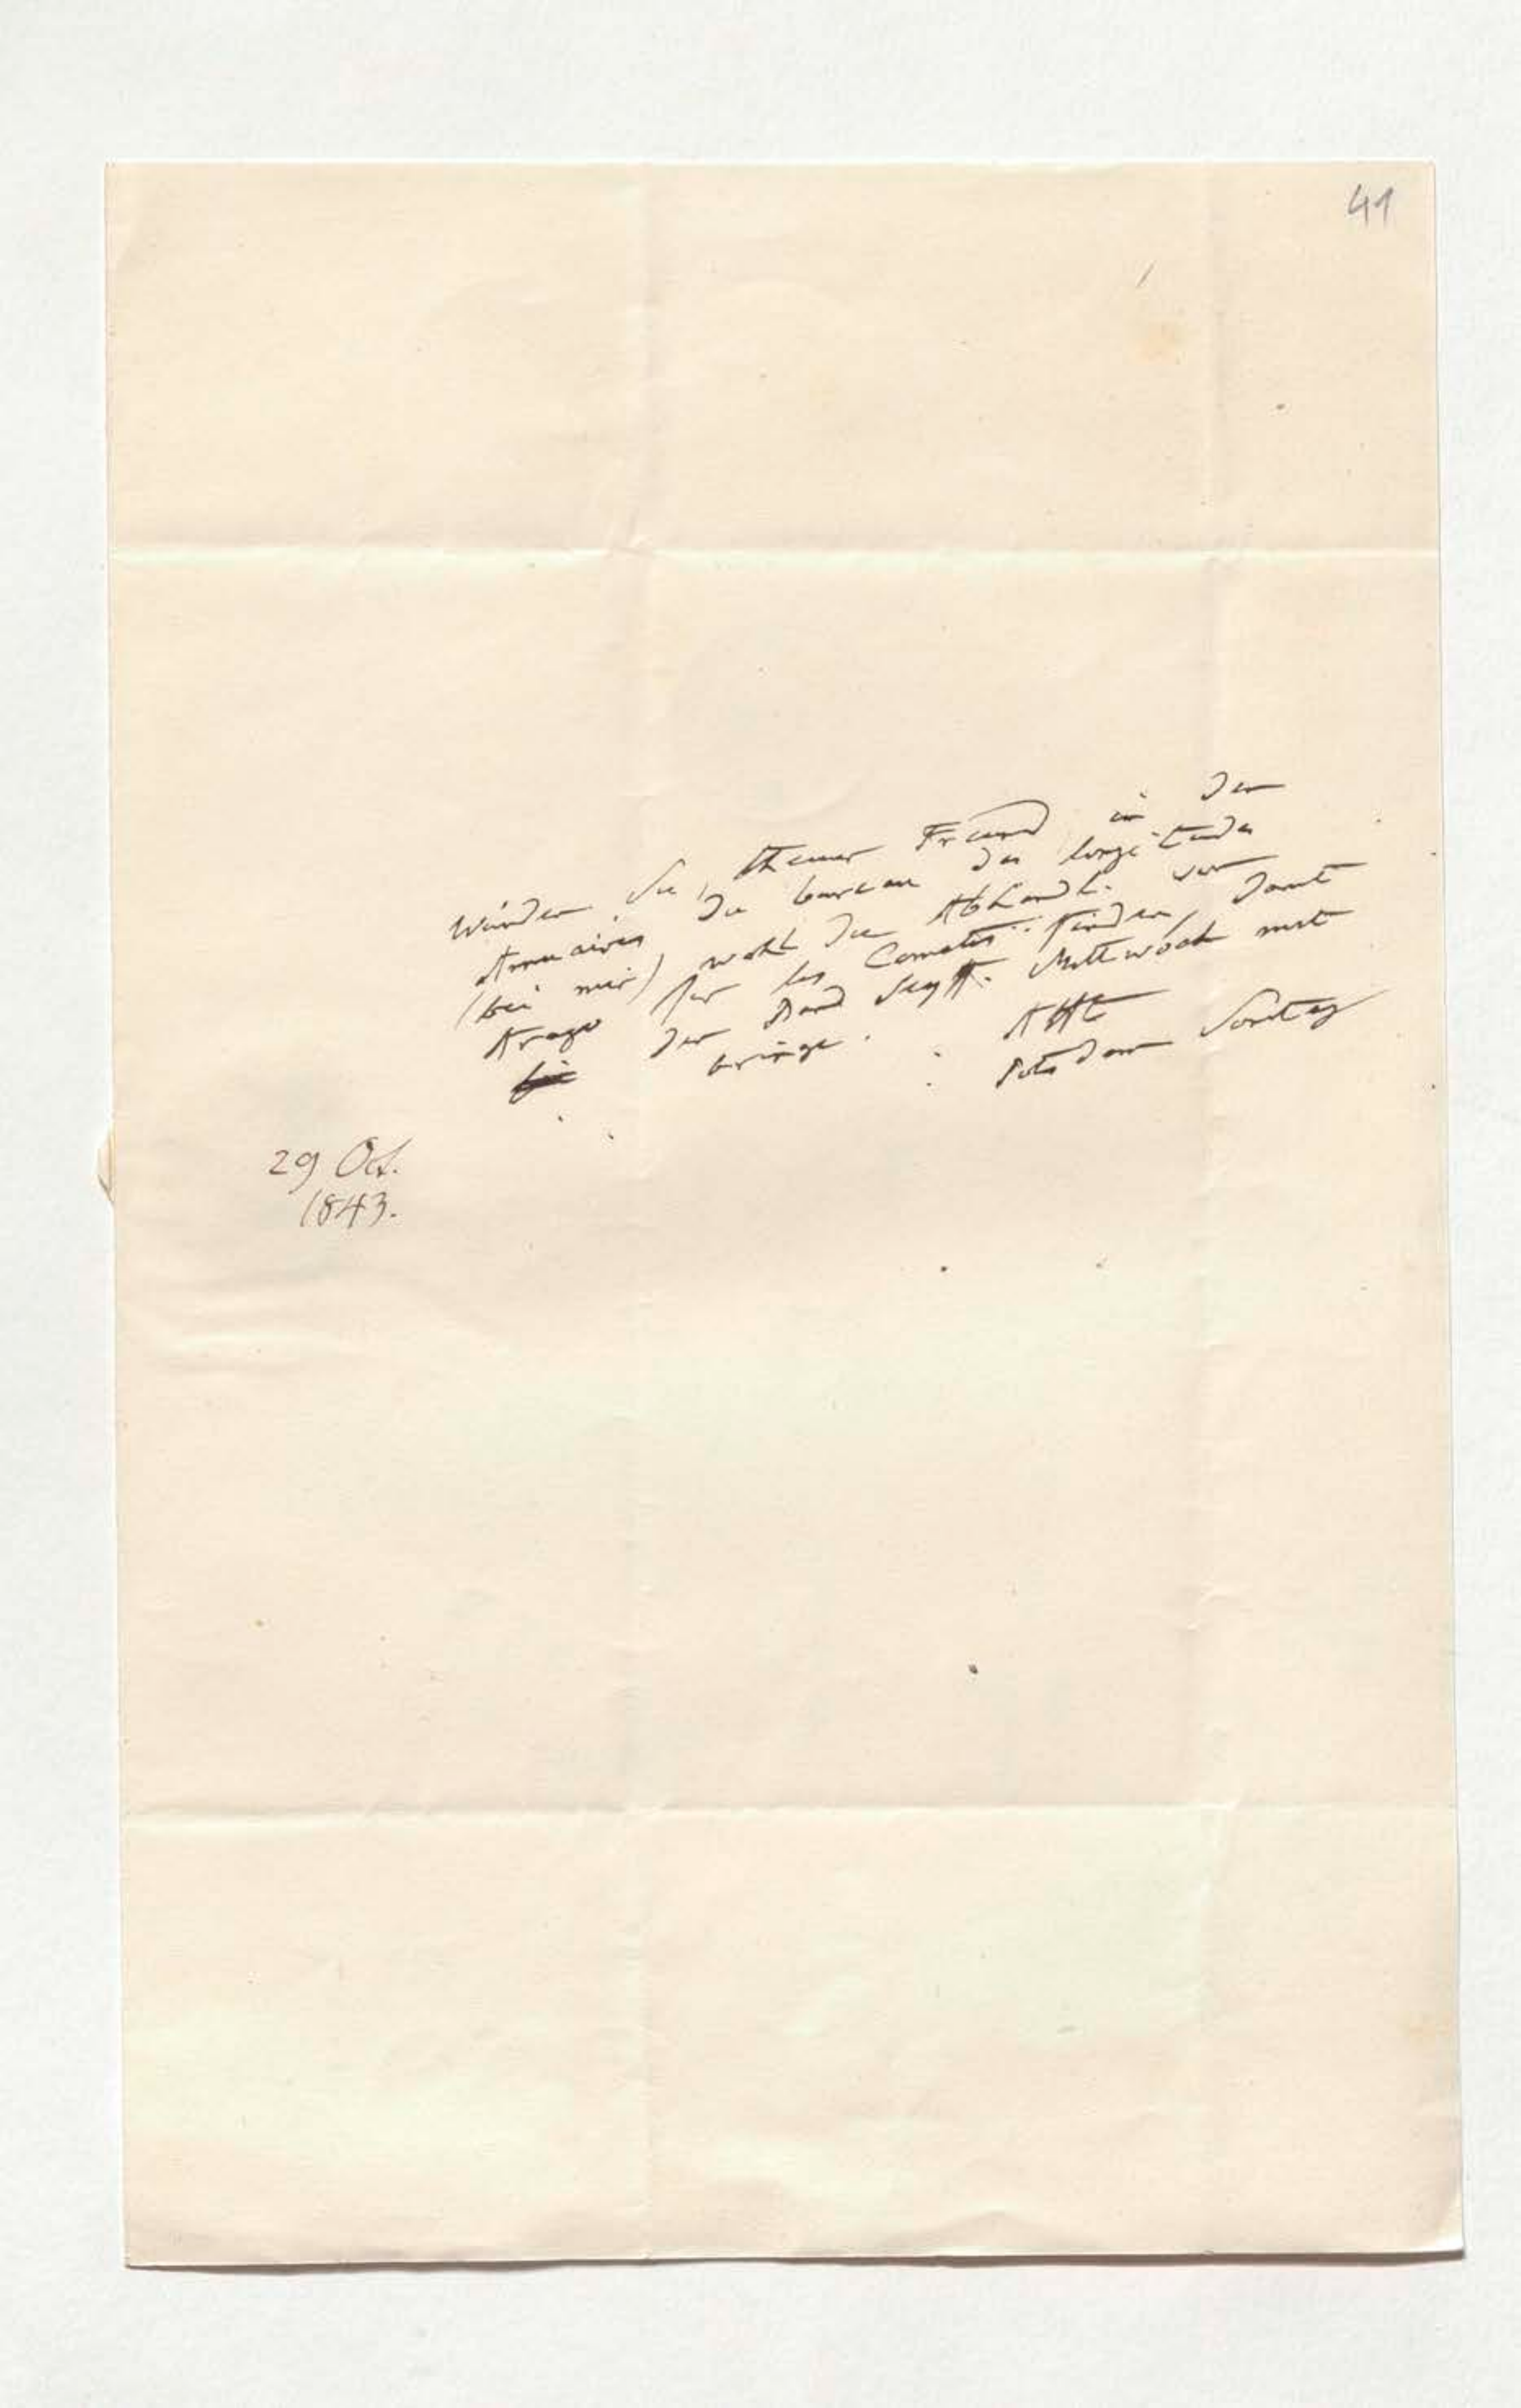 41
Würden Sie, theurer Freund in den
Annuaires du bureau des longitudes
(bei mir) wohl die Abhandl. von
Arago sur les Comètes finden, damit
der Band Seyff. Mittwoch mit
bringe.
AHt
Potsdam Sontag
29 Oct.
1843.